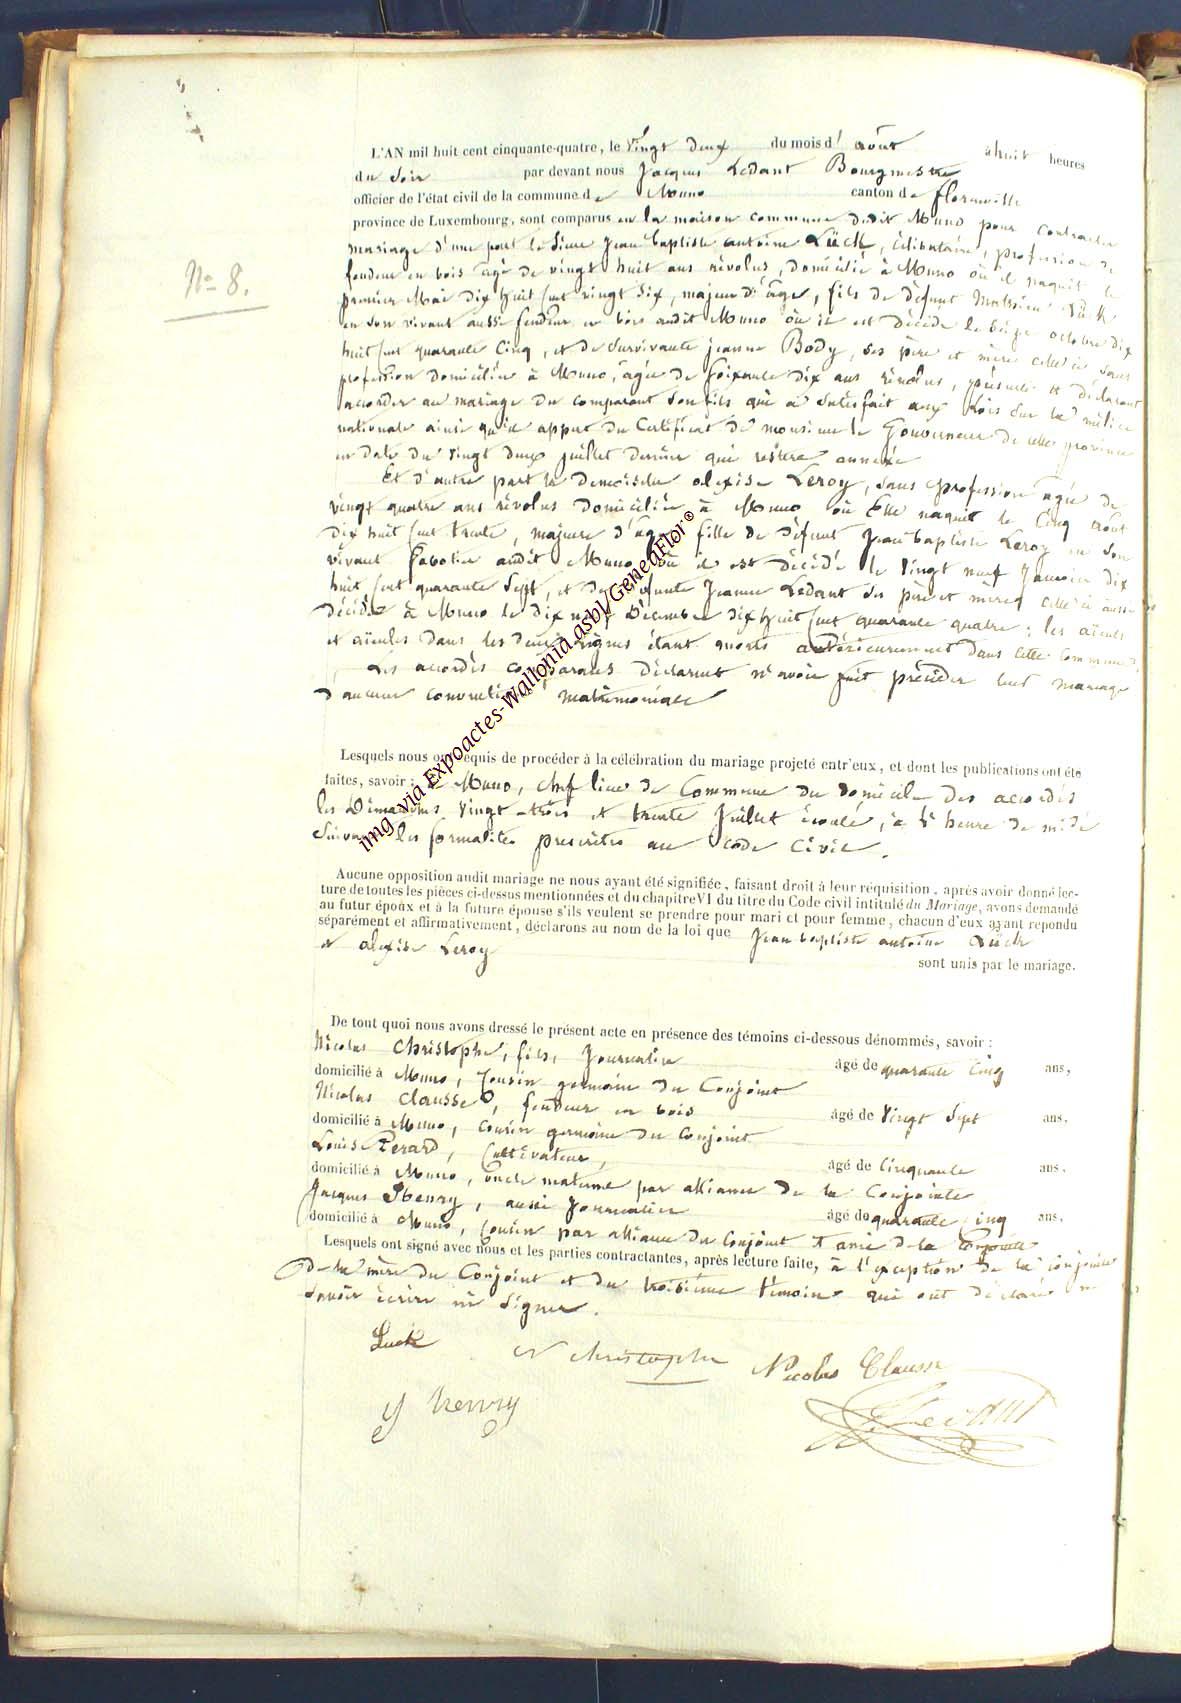 N° 8.
L'AN mil huit cent cinquante-quatre, le vingt deux du mois d'août à huit heures
du soir par devant nous Jacques Ledant Bourgmestre
officier de l'état civil de la commune de Muno canton de florenville
province de Luxembourg, sont comparus en la maison commune dudit Muno pour contracter
mariage d'une part le Sieur Jean baptiste antoine Lück, célibataire, profession de
fendeur en bois agé de vingt huit ans révolus, domicilié à Muno où il naquit le
premier Mai dix huit cent vingt six, majeur d'âge, fils de défunt Lück
en son vivant aussi fendeur en bois audit Muno où il est décédé le octobre dix
huit cent quarante cinq, et de survivante jeanne Body, ses père et mère celle ci sans
profession domiciliée à Muno, âgée de soixante dix ans révolus, présente et déclarant
accorder au mariage du comparant son fils qui a satisfait aux lois sur la milice
nationale ainsi qu'il appert du Certificat de monsieur le Gouverneur de cette province
en date du vingt deux juillet dernier qui restera annexé
Et d'autre part la demoiselle alexise Leroy, sans profession agée de
vingt quatre ans révolus domiciliée à Muno où Elle naquit le Cinq août
dix huit cent trente, majeure d'âge fille de défunt Jean baptiste Leroy en son
vivant Sabotier audit Muno où il est décédé le vingt neuf Janvier dix
huit cent quarante sept, et de défunte Jeanne Ledant ses père et mère celle ci aussi
décédée à Muno le dix neuf Décembre dix huit cent quarante quatre; les aïeuls
et aïeules dans les deux lignes étant morts antérieurement dans cette commune,
Les accordés comparants déclarent n'avoir fait précéder leur mariage
d'aucune convention matrimoniale
Lesquels nous ont requis de procéder à la célébration du mariage projeté entr'eux, et dont les publications ont été
faites, savoir: à Muno, chef lieu de Commune du domicile des accordés
les Dimanches vingt-trois et trente Juillet écoulé, à l'heure de midi
Suivant les formalités prescrites au Code Civil.
Aucune opposition audit mariage ne nous ayant été signifiée, faisant droit à leur réquisition, après avoir donné lec-
ture de toutes les pièces ci-dessus mentionnées et du chapitre VI du titre du Code civil intitulé du Mariage, avons demandé
au futur époux et à la future épouse s'ils veulent se prendre pour mari et pour femme, chacun d'eux ayant répondu
séparément et affirmativement, déclarons au nom de la loi que Jean baptiste antoine Lück
et alexise Leroy
sont unis par le mariage.
De tout quoi nous avons dressé le présent acte en présence des témoins ci-dessous dénommés, savoir:
Nicolas Christophe, fils, Journalier âgé de quarante cinq ans,
domicilié à Muno, Cousin germain du Conjoint
Nicolas Clausse, fendeur en bois âgé de vingt sept ans,
domicilié à Muno, cousin germain du conjoint
Louis Perard, Cultivateur, âgé de cinquante ans,
domicilié à Muno, oncle maternel par alliance de la Conjointe
Jacques Henry, aussi Journalier âgé de quarante cinq ans,
domicilié à Muno, Cousin par alliance du Conjoint et ami de la Conjointe
Lesquels ont signé avec nous et les parties contractantes, après lecture faite, à l'exception de la conjointe
De la mère du Conjoint et du troisième témoin qui ont déclaré ne
savoir écrire ni signer.
Luck N christophe Nicolas Clausse
J henry J Ledant
img via Expoactes-Wallonia.asbl/GeneaFlor©